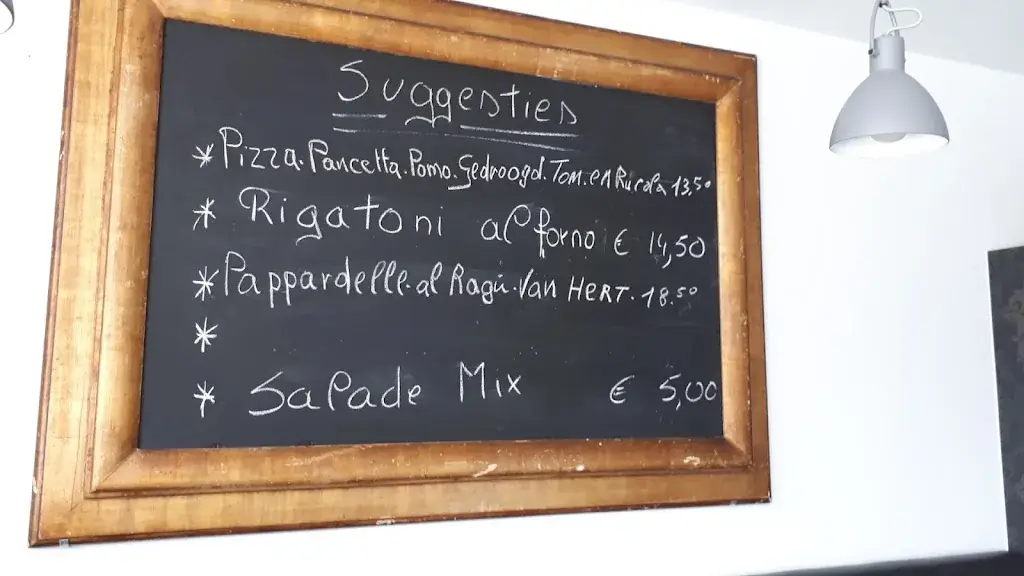 Suggesties
* Pizza. Pancetta. Pomo. Gedroogd. Tom. en Rucola 13,50
* Rigatoni al forno € 14,50
* Pappardelle. al Ragú. Van HERT. 18.50
*
* Salade Mix € 5,00